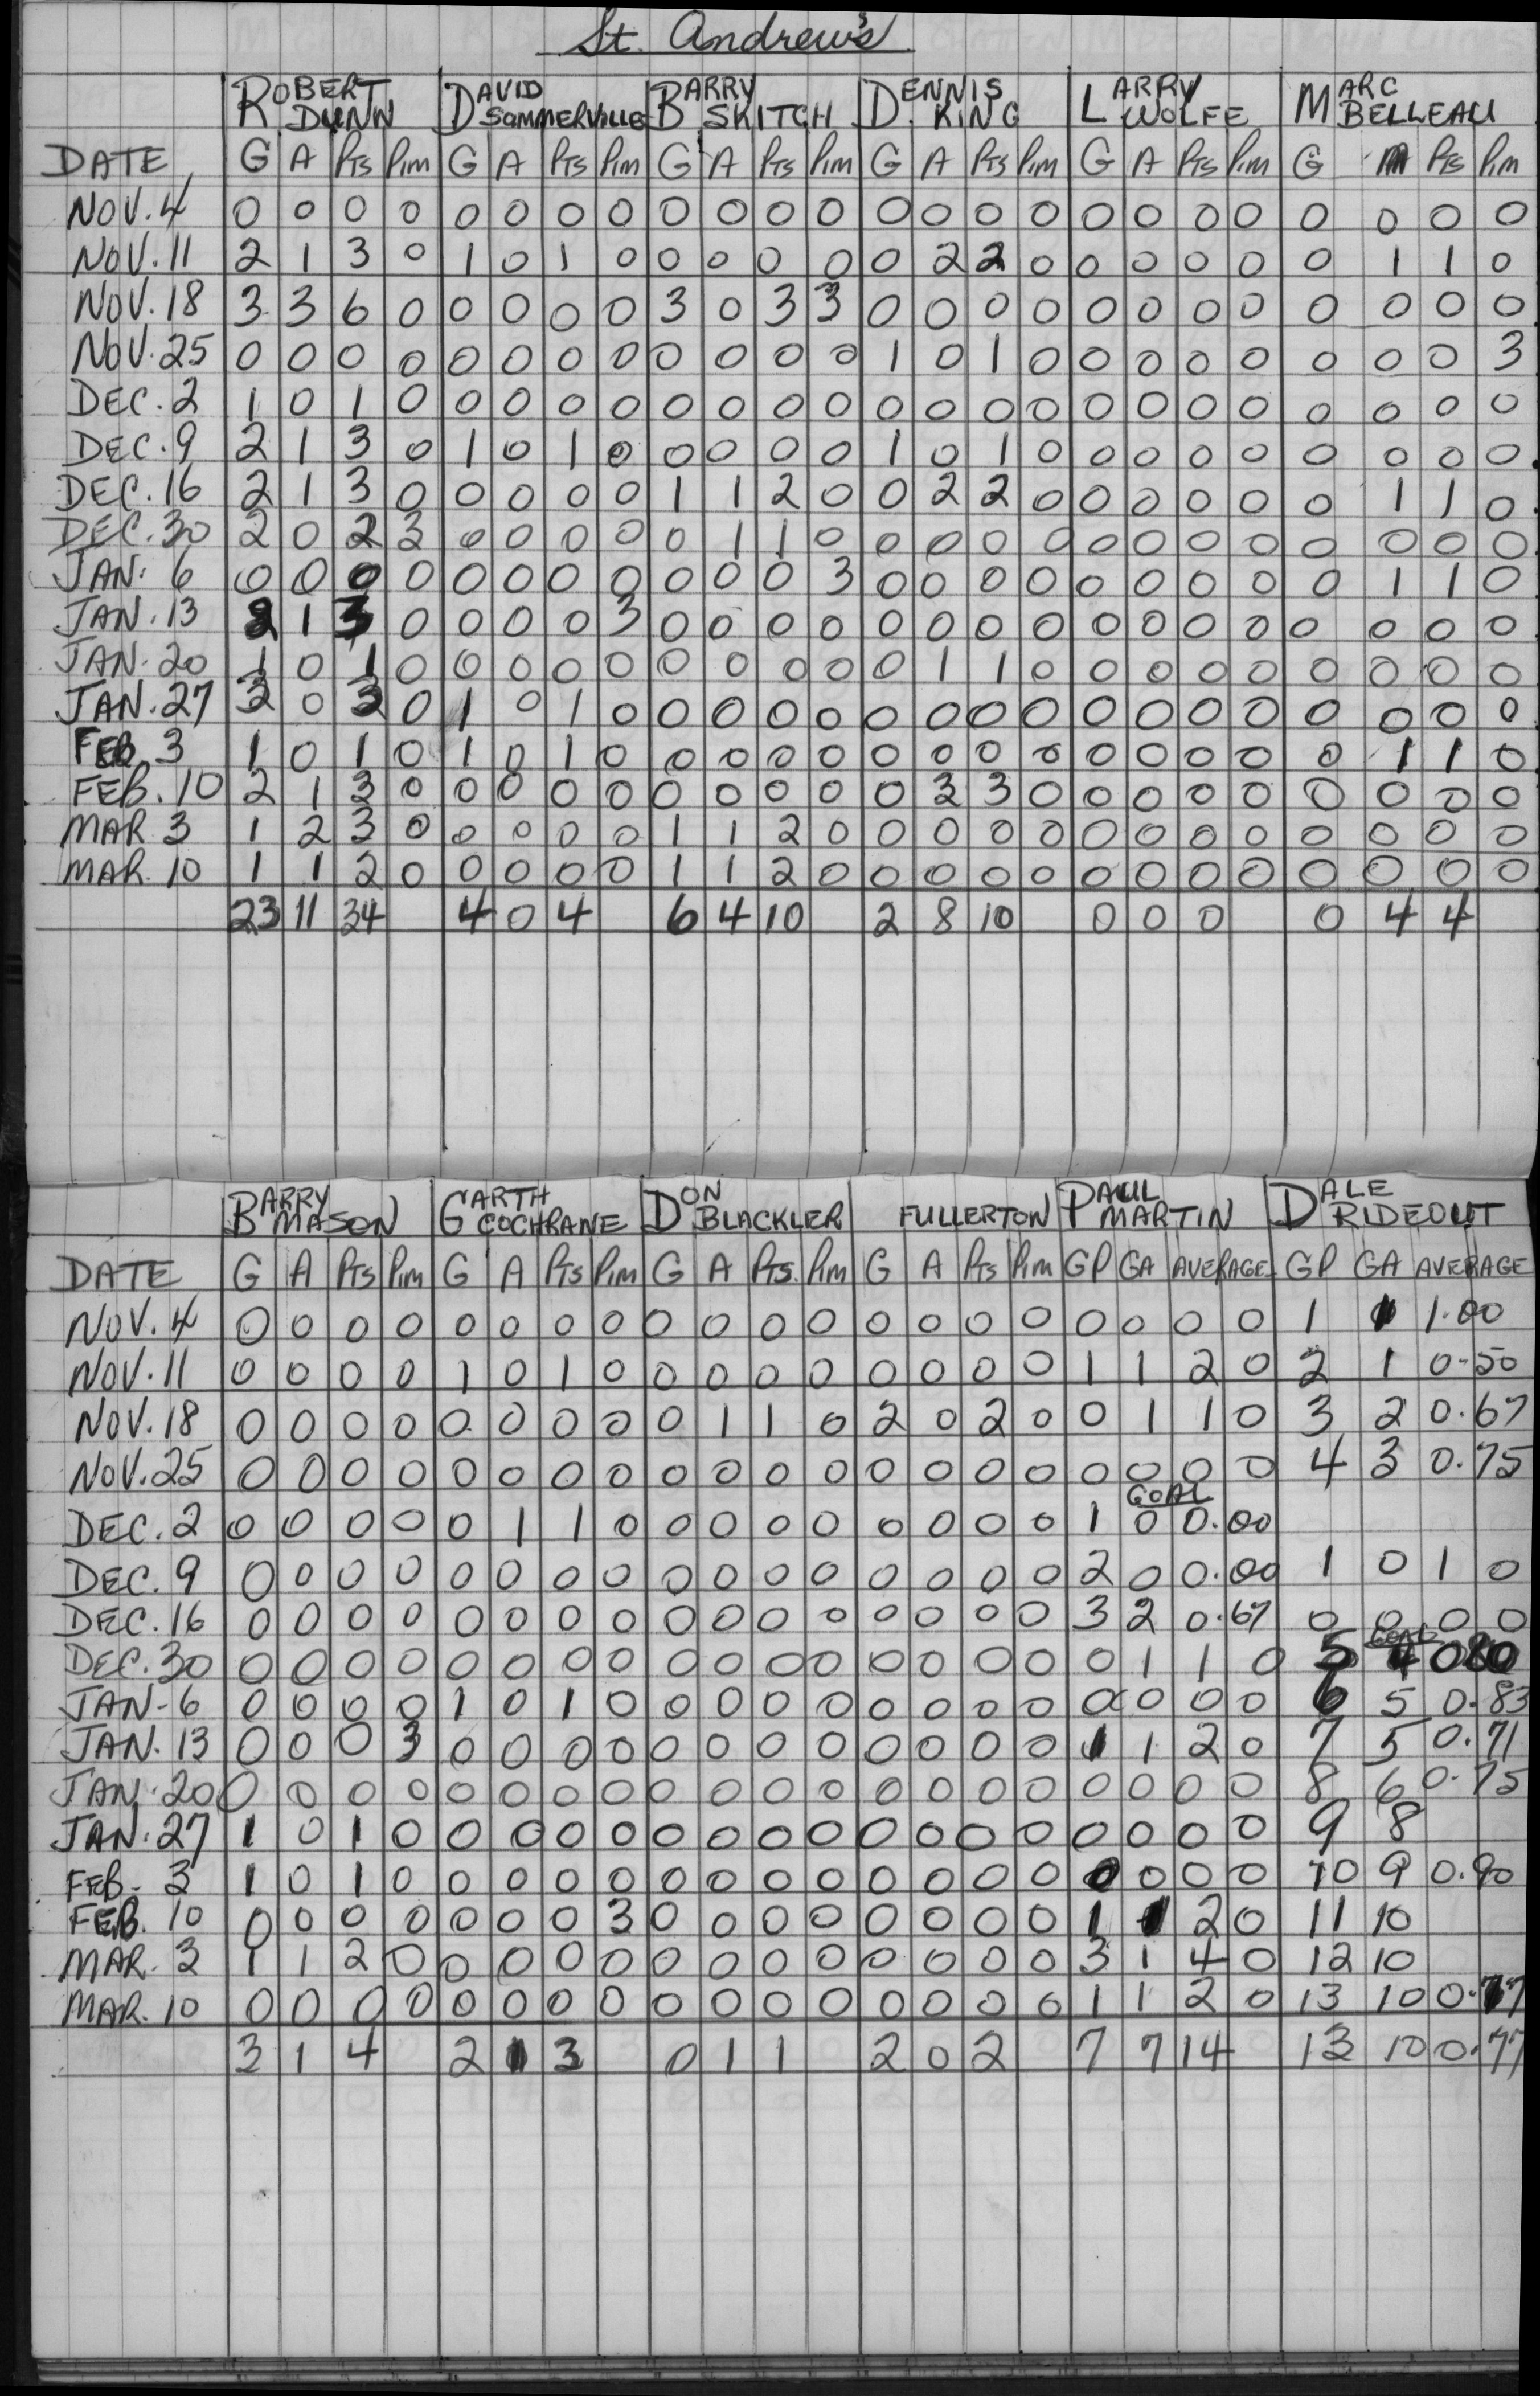 St. Andrew's
ROBERT DUNN DAVID SOMMERVILLE BARRY SKITCH DENNIS KING LARRY WOLFE MARC BELLEAU
DATE G A Pts Pim G A Pts Pim G A Pts Pim G A Pts Pim G A Pts Pim G A Pts Pim
NOV. 4 0 0 0 0 0 0 0 0 0 0 0 0 0 0 0 0 0 0 0 0 0 0 0 0
NOV. 11 2 1 3 0 1 0 1 0 0 0 0 0 0 2 2 0 0 0 0 0 0 1 1 0
NOV. 18 3 3 6 0 0 0 0 0 3 0 3 3 0 0 0 0 0 0 0 0 0 0 0 0
NOV. 25 0 0 0 0 0 0 0 0 0 0 0 0 1 0 1 0 0 0 0 0 0 0 0 3
DEC. 2 1 0 1 0 0 0 0 0 0 0 0 0 0 0 0 0 0 0 0 0 0 0 0 0
DEC. 9 2 1 3 0 1 0 1 0 0 0 0 0 1 0 1 0 0 0 0 0 0 0 0 0
DEC. 16 2 1 3 0 0 0 0 0 1 1 2 0 0 2 2 0 0 0 0 0 0 1 1 0
DEC. 30 2 0 2 3 0 0 0 0 0 1 1 0 0 0 0 0 0 0 0 0 0 0 0 0
JAN. 6 0 0 0 0 0 0 0 0 0 0 0 3 0 0 0 0 0 0 0 0 0 1 1 0
JAN. 13 2 1 3 0 0 0 0 3 0 0 0 0 0 0 0 0 0 0 0 0 0 0 0 0
JAN. 20 1 0 1 0 0 0 0 0 0 0 0 0 0 1 1 0 0 0 0 0 0 0 0 0
JAN. 27 3 0 3 0 1 0 1 0 0 0 0 0 0 0 0 0 0 0 0 0 0 0 0 0
FEB. 3 1 0 1 0 1 0 1 0 0 0 0 0 0 0 0 0 0 0 0 0 0 1 1 0
FEB. 10 2 1 3 0 0 0 0 0 0 0 0 0 0 3 3 0 0 0 0 0 0 0 0 0
MAR. 3 1 2 3 0 0 0 0 0 1 1 2 0 0 0 0 0 0 0 0 0 0 0 0 0
MAR. 10 1 1 2 0 0 0 0 0 1 1 2 0 0 0 0 0 0 0 0 0 0 0 0 0
23 11 34 4 0 4 6 4 10 2 8 10 0 0 0 0 4 4
BARRY MASON GARTH COCHRANE DON BLACKLER FULLERTON PAUL MARTIN DALE RIDEOUT
DATE G A Pts Pim G A Pts Pim G A Pts. Pim G A Pts Pim GP GA AVERAGE GP GA AVERAGE
NOV. 4 0 0 0 0 0 0 0 0 0 0 0 0 0 0 0 0 0 0 0 0 1 1 1.00
NOV. 11 0 0 0 0 1 0 1 0 0 0 0 0 0 0 0 0 1 1 2 0 2 1 0.50
NOV. 18 0 0 0 0 0 0 0 0 0 1 1 0 2 0 2 0 0 1 1 0 3 2 0.67
NOV. 25 0 0 0 0 0 0 0 0 0 0 0 0 0 0 0 0 0 0 0 0 4 3 0.75
GOAL
DEC. 2 0 0 0 0 0 1 1 0 0 0 0 0 0 0 0 0 1 0 0.00
DEC. 9 0 0 0 0 0 0 0 0 0 0 0 0 0 0 0 0 2 0 0.00 1 0 1 0
DEC. 16 0 0 0 0 0 0 0 0 0 0 0 0 0 0 0 0 3 2 0.67 0 0 0 0
GOAL
DEC. 30 0 0 0 0 0 0 0 0 0 0 0 0 0 0 0 0 0 1 1 0 5 4 0.80
JAN-6 0 0 0 0 1 0 1 0 0 0 0 0 0 0 0 0 0 0 0 0 6 5 0.83
JAN. 13 0 0 0 3 0 0 0 0 0 0 0 0 0 0 0 0 1 1 2 0 7 5 0.71
JAN. 20 0 0 0 0 0 0 0 0 0 0 0 0 0 0 0 0 0 0 0 0 8 6 0.75
JAN. 27 1 0 1 0 0 0 0 0 0 0 0 0 0 0 0 0 0 0 0 0 9 8
FEB- 3 1 0 1 0 0 0 0 0 0 0 0 0 0 0 0 0 0 0 0 0 10 9 0.90
FEB. 10 0 0 0 0 0 0 0 3 0 0 0 0 0 0 0 0 1 1 2 0 11 10
MAR. 3 1 1 2 0 0 0 0 0 0 0 0 0 0 0 0 0 3 1 4 0 12 10
MAR. 10 0 0 0 0 0 0 0 0 0 0 0 0 0 0 0 0 1 1 2 0 13 10 0.77
3 1 4 2 1 3 0 1 1 2 0 2 7 7 14 13 10 0.77